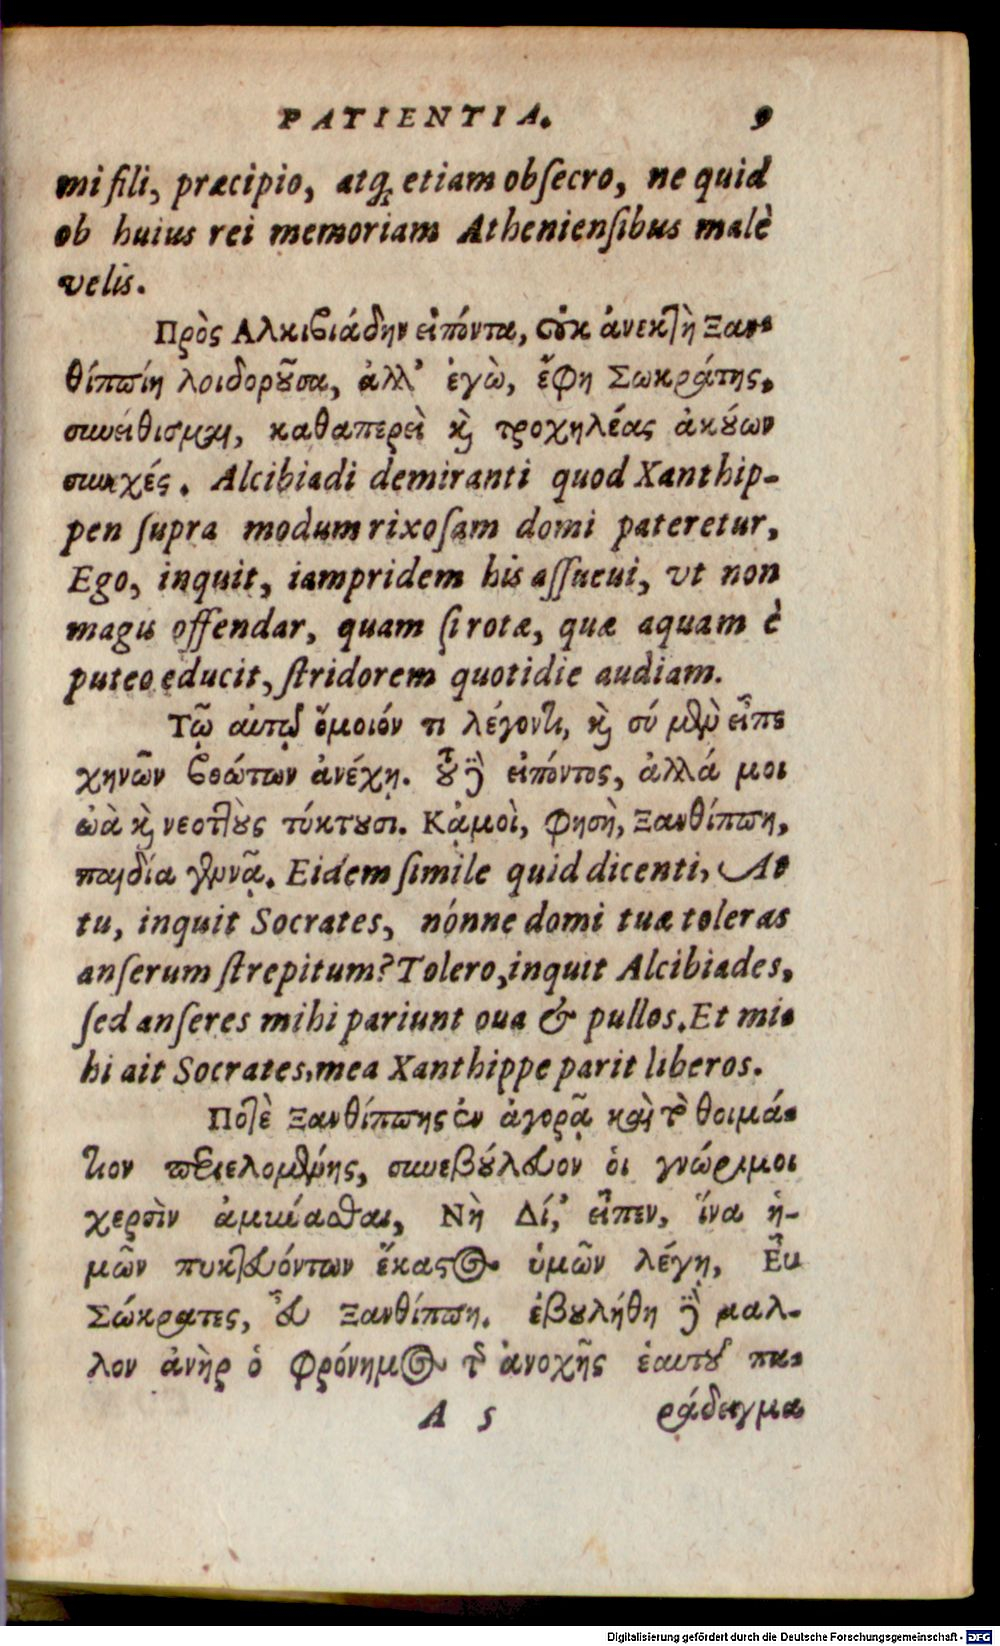 PATIENTIA. 9
mi fili, præcipio, atq; etiam obſecro, ne quid
ob huius rei memoriam Athenienſibus malè
velis.
Πρὸς Αλκιβιάδην εἰπόντα, οὐκ ἀνεκτὴ Ξαν-
θίππη λοιδοροῦσα, ἀλλ' ἐγὼ, ἔφη Σωκράτης,
συνείθισμαι, καθαπερεὶ καὶ τροχηλέας ἀκούων
συνεχές. Alcibiadi demiranti quod Xanthip-
pen ſupra modum rixoſam domi pateretur,
Ego, inquit, iampridem his aſſueui, vt non
magis offendar, quam ſi rotæ, quæ aquam è
puteo educit, ſtridorem quotidie audiam.
Τῷ αὐτῷ ὅμοιόν τι λέγοντι, καὶ σύ μὲν εἶπε
χηνῶν βοώντων ἀνέχῃ. τοῦ δὲ εἰπόντος, ἀλλά μοι
ὠὰ καὶ νεοττοὺς τίκτουσι. Κἀμοὶ, φησὴ, Ξανθίππη,
παιδία γεννᾷ. Eidem ſimile quid dicenti, At
tu, inquit Socrates, nónne domi tuæ toleras
anſerum ſtrepitum? Tolero, inquit Alcibiades,
ſed anſeres mihi pariunt oua & pullos. Et mi-
hi ait Socrates, mea Xanthippe parit liberos.
Ποτὲ Ξανθίππης ἐν ἀγορᾷ καὶ τὸ θοιμά-
τιον περιελομένης, συνεβούλευον οἱ γνώριμοι
χερσὶν ἀμύνασθαι, Νὴ Δί', εἶπεν, ἵνα ἡ-
μῶν πυκτευόντων ἕκαστος ὑμῶν λέγῃ, Εὖ
Σώκρατες, εὖ Ξανθίππη. ἐβουλήθη δὲ μαλ-
λον ἀνὴρ ὁ φρόνημος τῆς ἀνοχῆς ἑαυτοῦ πα-
A 5 ράδειγμα
Digitalisierung gefördert durch die Deutsche Forschungsgemeinschaft - DFG